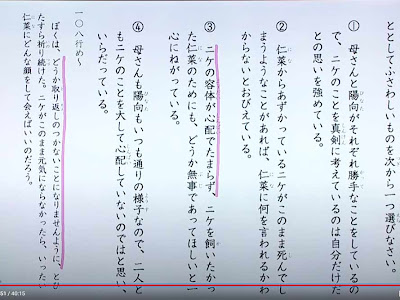 ととしてふさわしいものを次から一つ選びなさい。
① 母さんと陽向がそれぞれ勝手なことをしているの
で、ニケのことを真剣に考えているのは自分だけだ
との思いを強めている。
② 仁菜からあずかっているニケがこのまま死んでし
まうようなことがあれば、仁菜に何を言われるかわ
からないとおびえている。
③ ニケの容体が心配でたまらず、ニケを飼いたかっ
た仁菜のためにも、どうか無事であってほしいと一
心にねがっている。
④ 母さんも陽向もいつも通りの様子なので、二人と
もニケのことを大して心配していないのではと思い、
いらだっている。
一〇八行め~
ぼくは、どうか取り返しのつかないことになりませんように、とひ
たすら祈り続けた。ニケがこのまま元気にならなかったら、いったい
仁菜にどんな顔をして会えばいいのだろう。
51 / 40:15